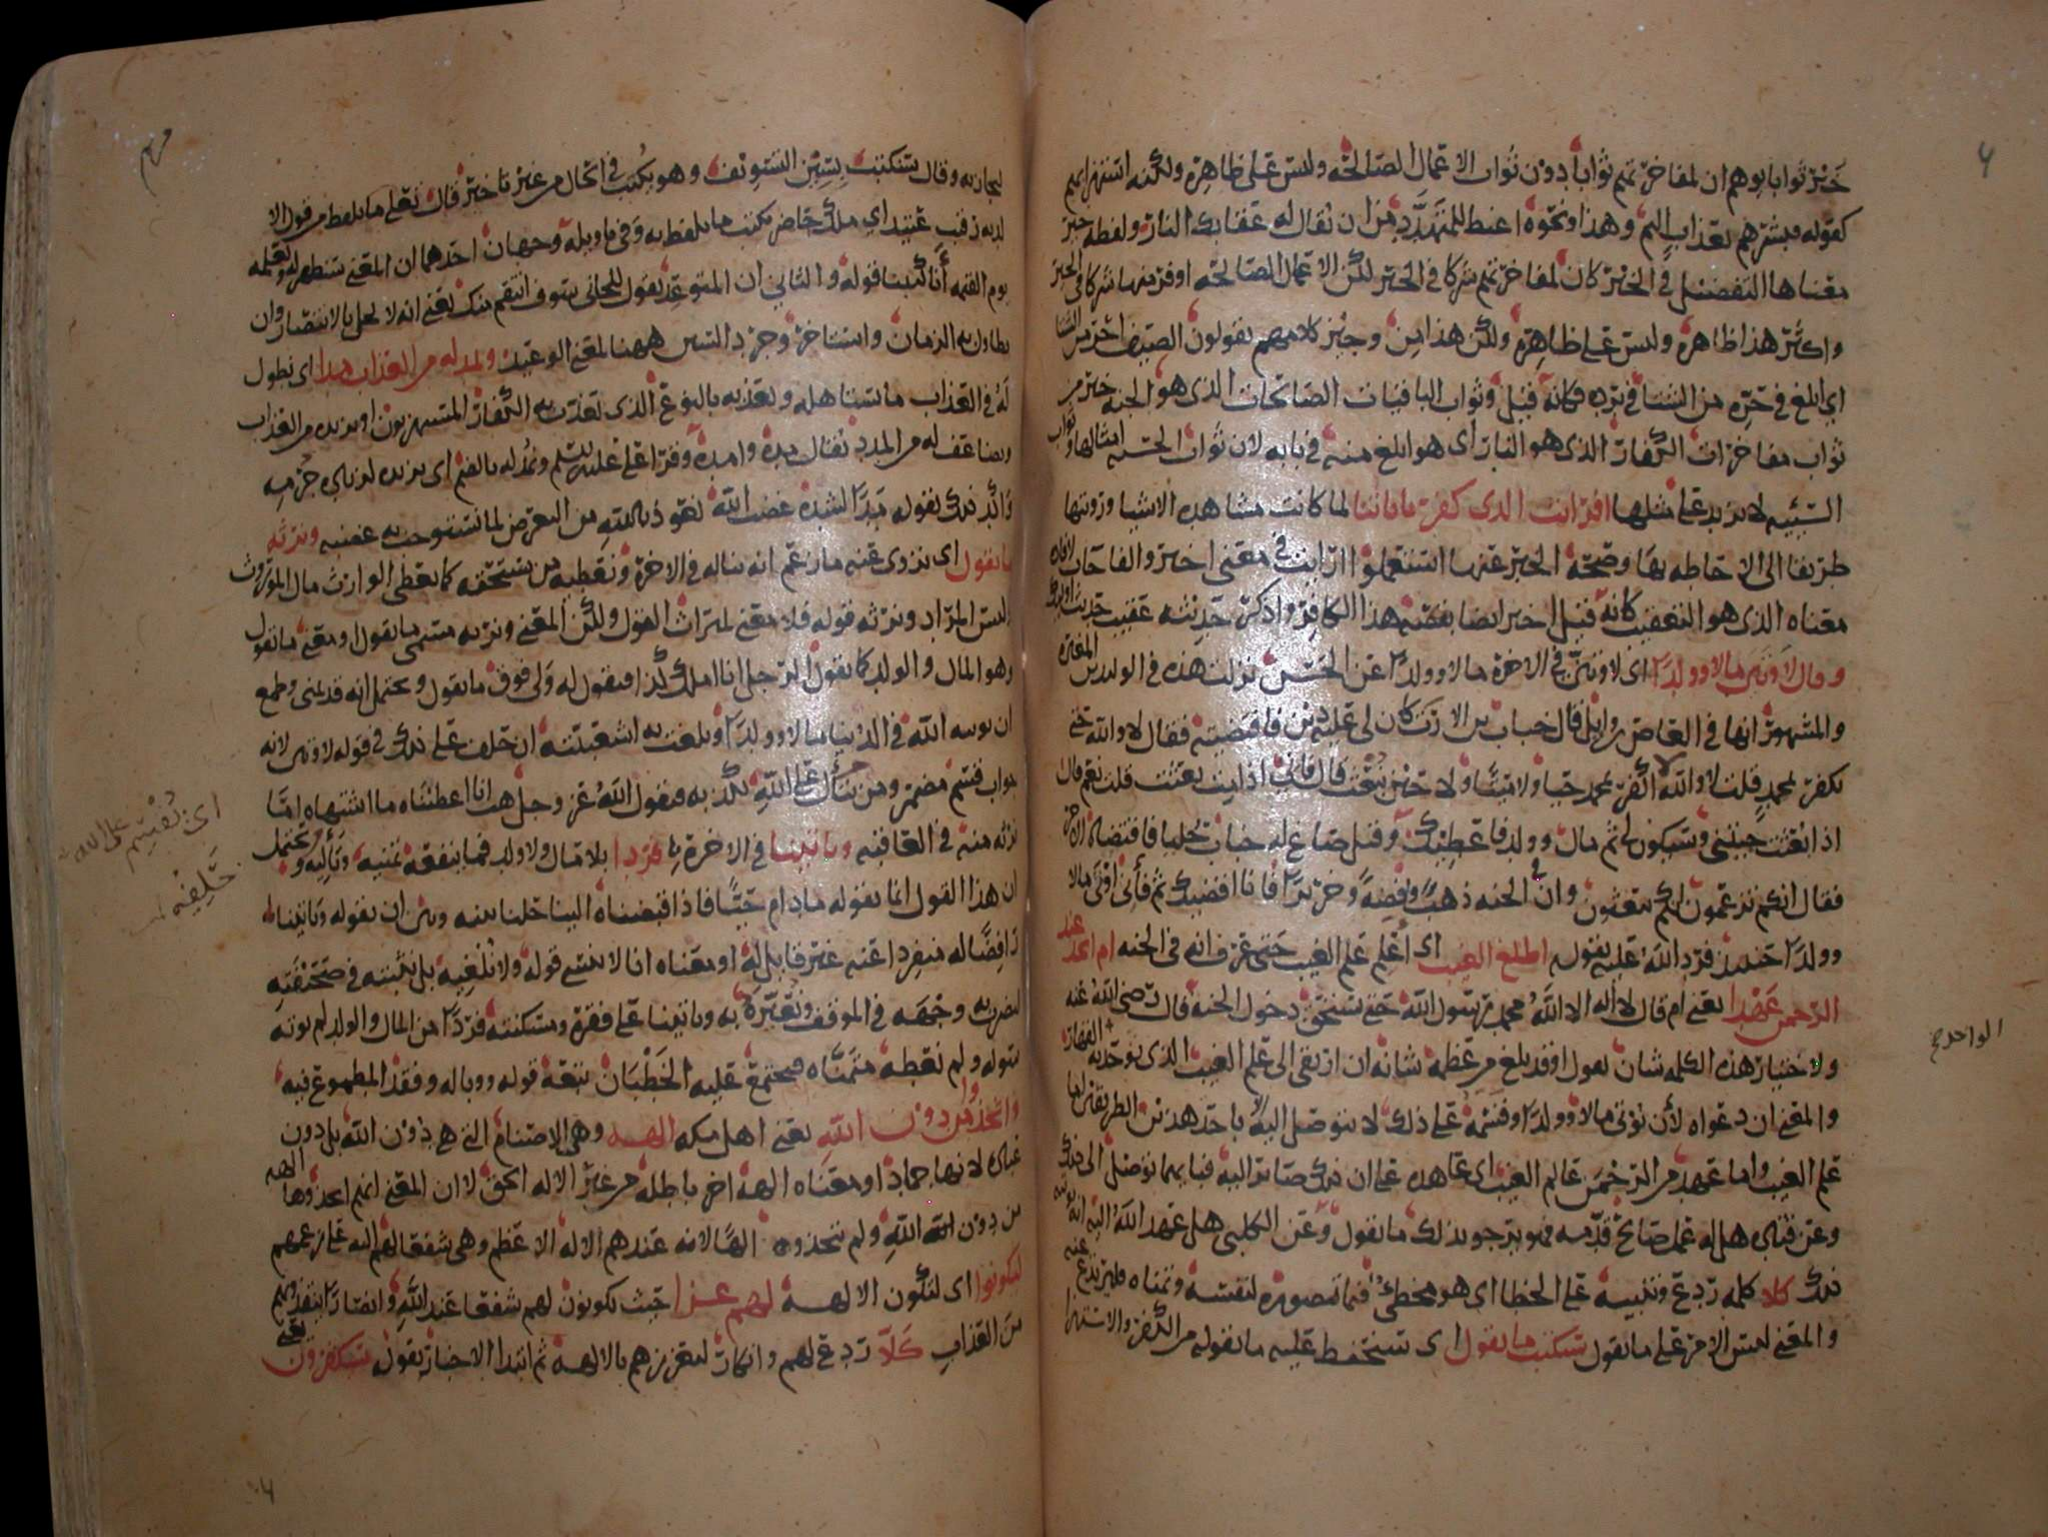 خير ثوابا يوهم ان لمفاخرتهم ثوابا دون ثواب الاعمال الصالحة وليس على ظاهره ولكنه استهزا بهم
كقوله فبشرهم بعذاب اليم وهذا ونحوه اغيظ للمتهدد من ان يقال له عقابك النار ولفظة خير
معناها التفضيل في الخير كان لمفاخرتهم شركا في الخير لكن الاعمال الصالحة اوفر منها شركا في الخير
واكثر هذا ظاهره وليس على ظاهره ولكن هذا من وجيز كلامهم يقولون الصيف احر من الشتا
اي ابلغ في حره من الشتا في برده فكانه قيل وثواب الباقيات الصالحات الذي هو الجنة خير من
ثواب مفاخرات الكفار الذي هو النار اي هو ابلغ منه في بابه لان ثواب الحسنة امثالها وثواب
السيئة لا يزيد على مثلها افرايت الذي كفر باياتنا لما كانت مشاهدة الاشيا ورويتها
طريقا الى الاحاطة بها وصحة الخبر عنها استعملوا ارايت في معنى اخبر والفا جات لافادة
معناه الذي هو التعقيب كانه قيل اخبر ايضا بقصة هذا الكافر واذكر حديثه عقيب حديث اوليك
وقال لاوتين مالا وولدا اي لاوتين في الاخرة مالا وولدا عن الحسن نزلت هذه في الوليد بن المغيرة
والمشهور انها في العاص بن وايل قال خباب بن الارت كان لي عليه دين فاقتضيته فقال لا والله حتى
تكفر بمحمد قلت لا والله لا اكفر بمحمد حيا ولا ميتا ولا حين تبعث قال فاني اذا مت بعثت قلت نعم قال
اذا بعثت جيتني وسيكون لي ثم مال وولد فاعطيك وقيل صاغ له خباب حليا فاقتضاه الاجر
فقال انكم تزعمون انكم تبعثون وان في الجنة ذهبا وفضة وحريرا فانا اقضيك ثم فاني اوتى مالا
وولدا حينئذ فرد الله عليه بقوله اطلع الغيب اي اعلم علم الغيب حتى عرف انه في الجنة ام اتخذ عند
الرحمن عهدا يعني ام قال لا اله الا الله محمد رسول الله حتى يستحق دخول الجنة قال رضي الله عنه
ولاختيار هذه الكلمة شان يقول اوقد بلغ من عظمة شانه ان ارتقى الى علم الغيب الذي توحد به القهار
الواحد صح
والمعنى ان دعواه لأن يوتى مالا وولدا وقسمه على ذلك لا يتوصل اليه الا باحد هذين الطريقين اما
علم الغيب واما عهد من الرحمن عالم الغيب اي عاهده على ان ذلك صاير اليه فبايهما توصل الى ذلك
وعن قتادة هل له عمل صالح قدمه فهو يرجو بذلك ما يقول وعن الكلبي هل عهد الله اليه انه يوتيه
ذلك كلا كلمة ردع وتنبيه على الخطا اي هو مخطئ فيما تصوره لنفسه وتمناه فليرتدع عنه
والمعنى ليس الامر على ما يقول سنكتب ما يقول اي سنحفظ عليه ما يقوله من الكفر والاستهزا
لنجازيه وقال سنكتب بسين التسويف وهو يكتب في الحال من غير تاخير قال تعلى ما يلفظ من قول الا
لديه رقيب عتيد اي ملك حاضر يكتب ما يلفظ به وفي تاويله وجهان احدهما ان المعنى سنظهر له ونعلمه
يوم القيمة أنا كتبنا قوله والثاني ان المتوعد يقول للجاني سوف انتقم منك يعني انه لا يخل بالانتصار وان
تطاول به الزمان واستاخر وجرد السين ههنا لمعنى الوعيد ونمد له من العذاب مدا اي نطول
له في العذاب ما يستاهله ونعذبه بالنوع الذي نعذب به الكفار المستهزيون او نزيده من العذاب
ونضاعف له من المدد يقال مده وامده وقرا علي عليه السلم ونمد له بالضم اي نزيده
واكد ذلك بقوله مدا لشدة غضب الله نعوذ بالله من التعرض لما نستوجب به غضبه ونرثه
ما يقول اي نزوي عنه ما زعم انه يناله في الاخرة ونعطيه من يستحقه كما يعطى الوارث مال الموروث
وليس المراد ونرثه قوله فلا معنى لميراث القول ولكن المعنى ونرثه مسمى ما يقول ومعنى ما يقول
وهو المال والولد كما يقول الرجل انا املك كذا فيقول له ولي فوق ما تقول ويحتمل انه قد تمنى وطمع
ان يوتيه الله في الدنيا مالا وولدا وبلغت به اشعبيته ان حلف على ذلك في قوله لاوتين لانه
جواب قسم مضمر ومن يتأل على الله يكذبه فيقول الله عز وجل هب انا اعطيناه ما اشتهاه اما
اي يقسم على الله
نرثه منه في العاقبة وياتينا في الاخرة فردا بلا مال ولا ولد فما ينفعه تمنيه وتأليه ويحتمل
ان هذا القول انما يقوله ما دام حيا فاذا قبضناه الينا حلنا بينه وبين ان يقوله وياتينا
رافضا له منفردا عنه غير قايل له او معناه انا لا ننسى قوله ولا نلغيه بل نثبته في صحيفته
لنضرب به وجهه في الموقف ونعيره به وياتينا على فقره ومسكنته فردا من المال والولد لم نوته
سوله ولم نعطه متمناه فيجتمع عليه الخطبان تبعة قوله ووباله وفقد المطموع فيه
واتخذوا من دون الله يعني اهل مكه الهة وهي الاصنام التي هي دون الله بل دون
عباده لانها جماد او معناه الهة اخر باطلة من غير الاله الحق لا ان المعنى انهم اتخذوها الهة
من دون الله ولم يتخذوه الها لانه عندهم الاله الاعظم وهي شفعا لهم اليه على زعمهم
ليكونوا اي لتكون الالهة لهم عزا حيث يكونون لهم شفعا عند الله وانصارا ينقذونهم
من العذاب كلا ردع لهم وانكار لتعززهم بالالهة ثم ابتدا الاخبار بقوله سيكفرون يعني